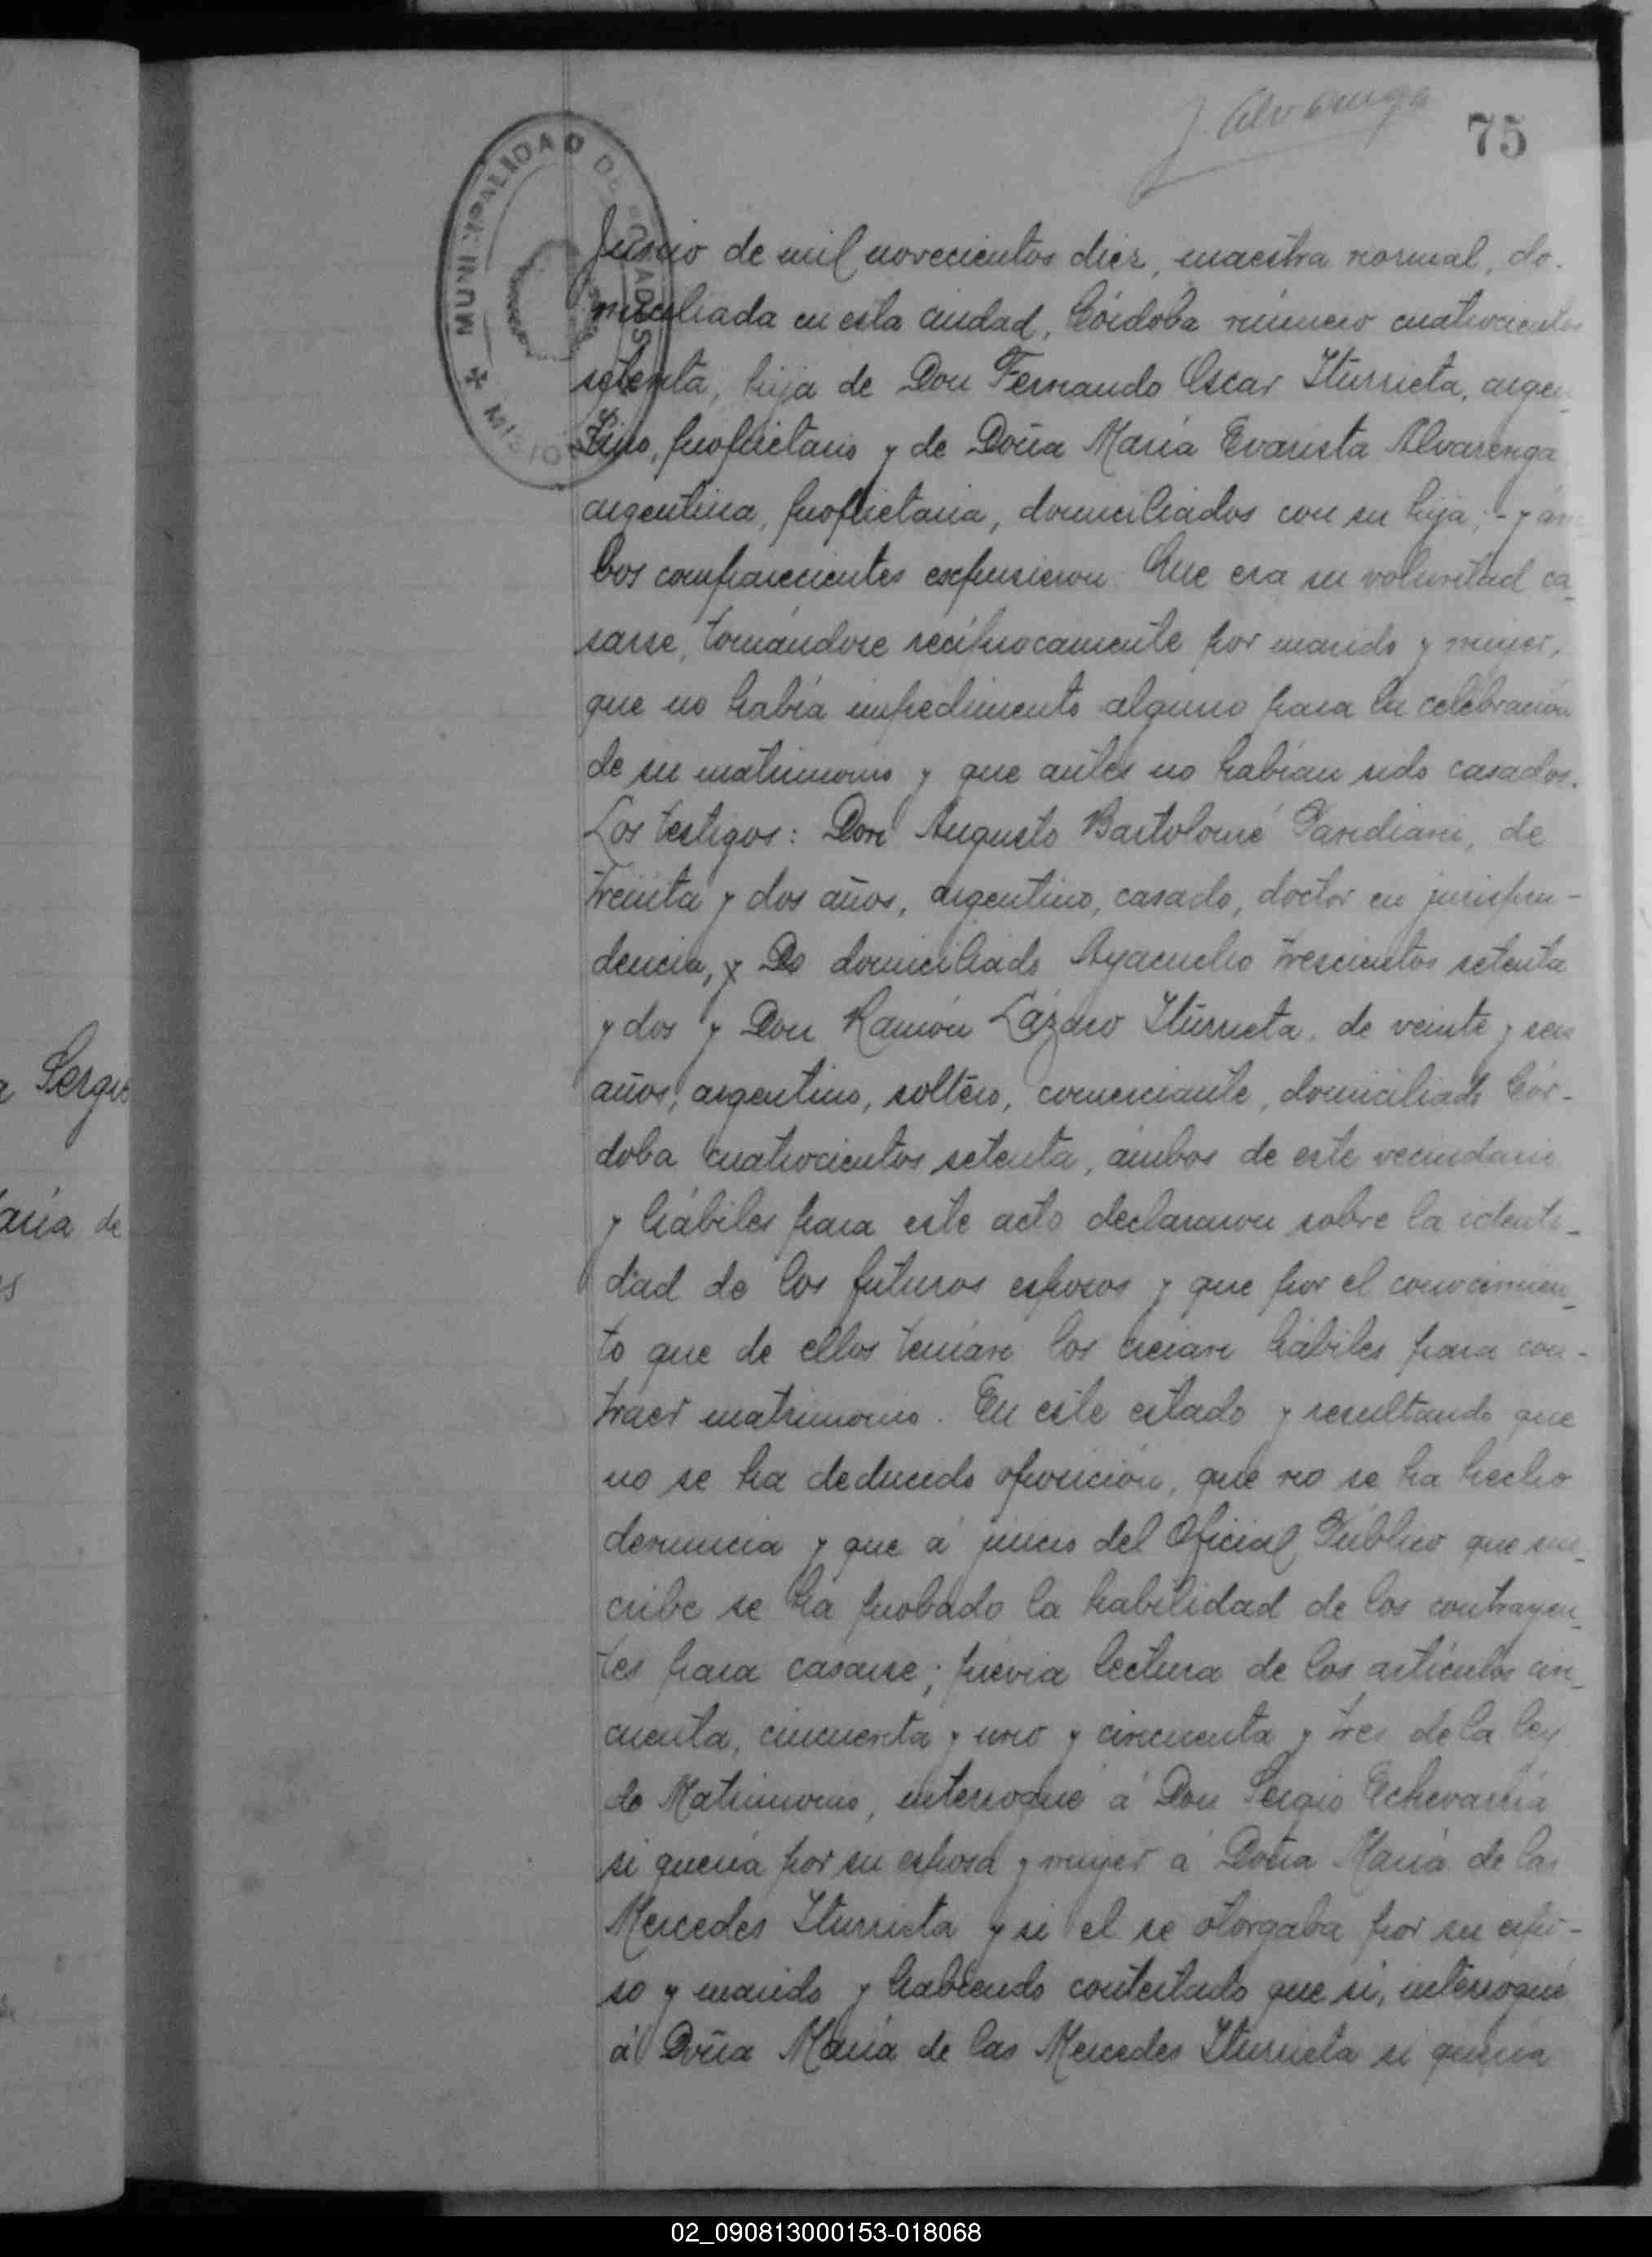 J. Alvarenga
75
MUNICIPALIDAD DE POSADAS
MISIONES
Junio de mil novecientos diez, maestra normal, do-
miciliada en esta ciudad, Córdoba número cuatrocientos
setenta, hija de Don Fernando Oscar Iturrieta, argen_
tino, propietario y de Doña María Evarista Alvarenga
argentina, propietaria, domiciliados con su hija; - y ám
bos comparecientes expusieron: Que era su voluntad ca_
sarse, tomándose recíprocamente por marido y mujer,
que no había impedimento alguno para la celebración
de su matrimonio y que antes no habían sido casados.
Los testigos: Don Augusto Bartolomé, de
treinta y dos años, argentino, casado, doctor en jurispru-
dencia, y Do domiciliado Ayacucho trescientos setenta
y dos y Don Ramón Lázaro Iturrieta, de veinte y seis
años, argentino, soltero, comerciante, domiciliado Cór-
doba cuatrocientos setenta, ámbos de este vecindario
y hábiles para este acto declararon sobre la identi_
dad de los futuros esposos y que por el conocimien_
to que de ellos tenían los creían hábiles para con-
traer matrimonio. En este estado y resultando que
no se ha deducido oposición, que no se ha hecho
denuncia y que á juicio del Oficial Público que sus_
cribe se ha probado la habilidad de los contrayen_
tes para casarse; prévia lectura de los artículos cin_
cuenta, cincuenta y uno y cincuenta y tres de la ley
de Matrimonio, interrogué á Don Sergio Echevarría
si quería por su esposa y mujer á Doña María de las
Mercedes Iturrieta y si el se otorgaba por su espo-
so y marido y habiendo contestado que si, interrogué
á Doña María de las Mercedes Iturrieta si quería
a Sergio
aría de
s
02_090813000153-018068